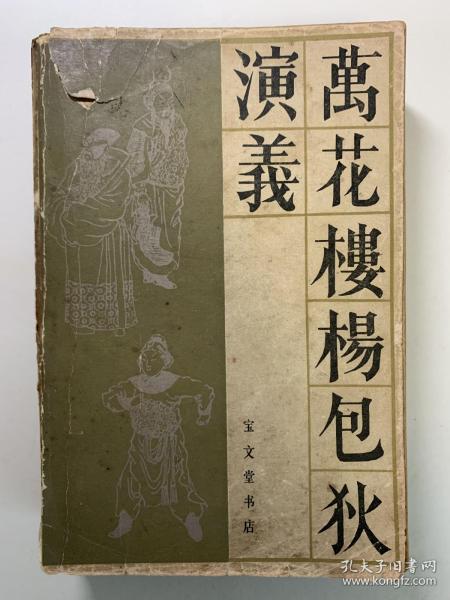 萬花樓楊包狄
演義
宝文堂书店
孔夫子旧书网
www.kongfz.com